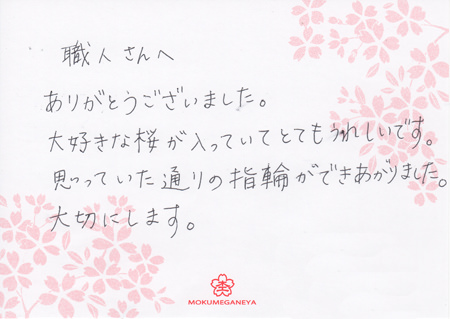 職人さんへ
ありがとうございました。
大好きな桜が入っていてとてもうれしいです。
思っていた通りの指輪ができあがりました。
大切にします。
MOKUMEGANEYA